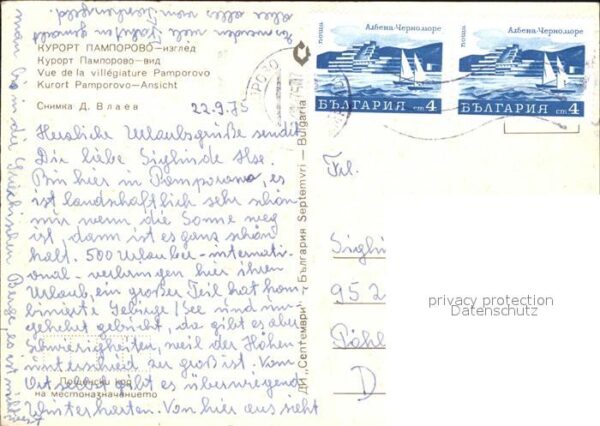 КУРОРТ ПАМПОРОВО—изглед
Курорт Пампорово—вид
Vue de la villégiature Pamporovo
Kurort Pamporovo—Ansicht
Снимка Д. Влаев
22.9.75
Herzliche Urlaubsgrüße sendet
Dir liebe Siglinde Ilse.
Bin hier in Pamporovo, es
ist landschaftlich sehr schön
nur wenn die Sonne weg
ist, dann ist es ganz schön
kalt. 500 Urlauber - internati-
onal - verbringen hier ihren
Urlaub, ein großer Teil hat kom-
binierte Gebirge/See sind um-
gekehrt gebucht, da gibt es aber
Schwierigkeiten, weil der Höhen-
unterschied zu groß ist. Vom
Ort selbst gibt es überwiegend
Winterkarten. Von hier aus sieht
man bis in die Griechischen Berge, es ist
alles vom
Пощенски код
на местоназначението
ДИ „Септември" — България Septemvri — Bulgaria
поща
Албена-Черноморе
БЪЛГАРИЯ ст 4
поща
Албена-Черноморе
БЪЛГАРИЯ ст 4
Frl.
Siglin
952
Pähl
D
privacy protection
Datenschutz